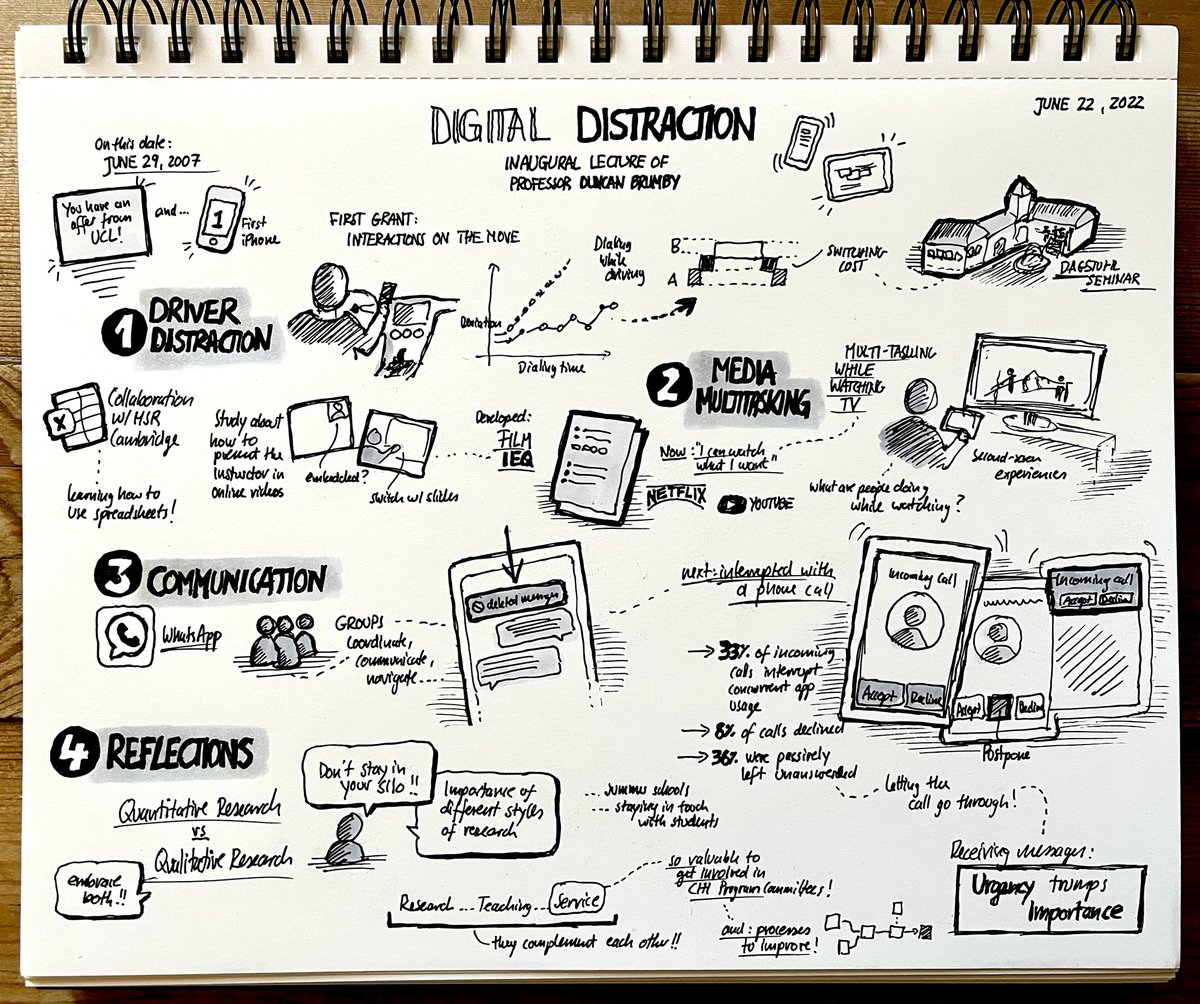 DIGITAL DISTRACTION
JUNE 22, 2022
INAUGURAL LECTURE OF
PROFESSOR DUNCAN BRUMBY
On this date:
JUNE 29, 2007
You have an
offer from
UCL!
and...
1
First
iPhone
FIRST GRANT:
INTERACTIONS ON THE MOVE
1
DRIVER
DISTRACTION
Deviation
Dialing time
Dialing
while
driving
B
A
SWITCHING
COST
DAGSTUHL
SEMINAR
X
Collaboration
w/ HSR
Cambridge
learning how to
use spreadsheets!
Study about
how to
present the
instructor in
online videos
embedded?
switch w/ slides
Developed:
FILM
IEQ
2
MEDIA
MULTITASKING
MULTI-TASKING
WHILE
WATCHING
TV
Now: "I can watch
what I want"
NETFLIX
YOUTUBE
Second-screen
experiences
what are people doing
while watching?
3
COMMUNICATION
WhatsApp
GROUPS
coordinate,
communicate,
navigate...
deleted message
next: interrupted with
a phone call
→ 33% of incoming
calls interrupt
concurrent app
usage
→ 8% of calls declined
→ 36% were passively
left unanswered
Incoming call
Accept
Decline
Accept
Decline
Postpone
Incoming call
Accept
Decline
letting the
call go through!
Receiving messages:
Urgency trumps
Importance
4
REFLECTIONS
Quantitative Research
vs
Qualitative Research
embrace
both!!
Don't stay in
your silo!!
Importance of
different styles
of research
summer schools
staying in touch
with students
Research ... Teaching ... Service
they complement each other!!
so valuable to
get involved in
CHI Program Committees!
and: processes
to improve!